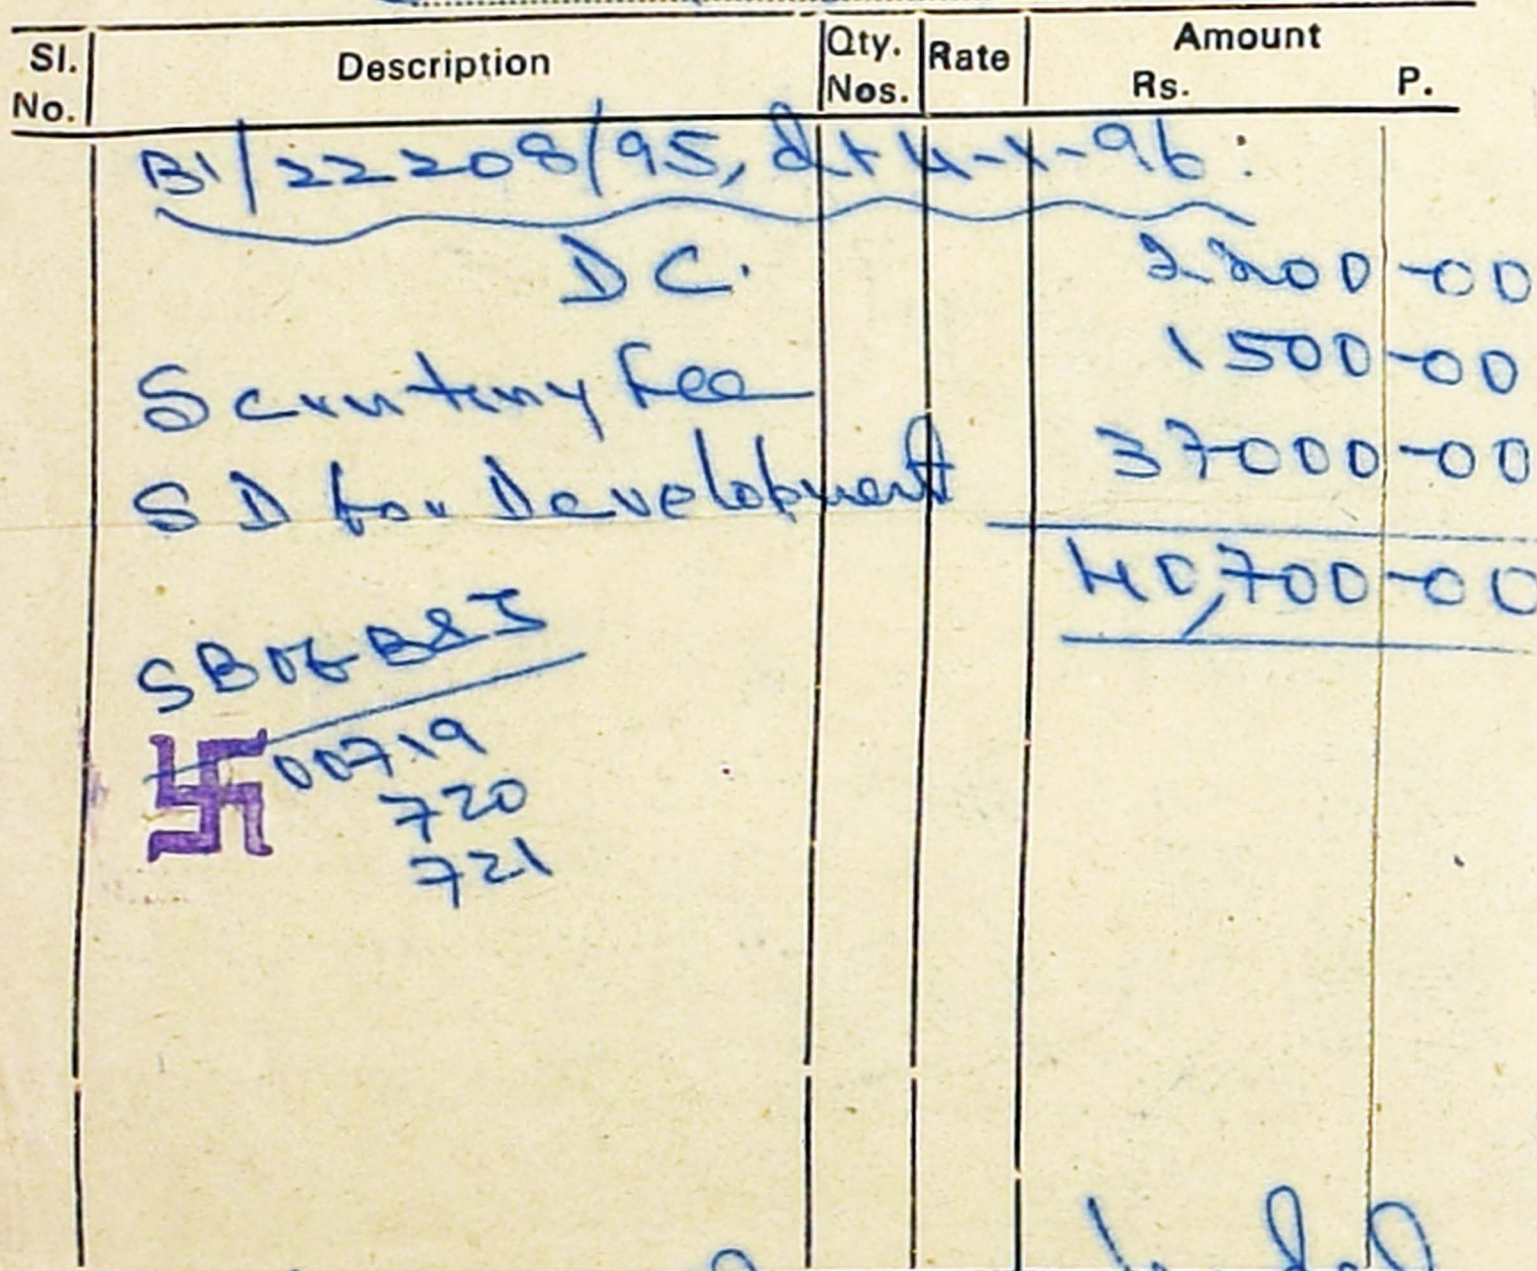 Sl. No. Description Qty. Nos. Rate Amount Rs. P.
B1/22208/95, dt 4-x-96:
DC. 2200-00
Scrutiny Fee 1500-00
SD for Development 37000-00
40,700-00
SB of B&J
00719
720
721